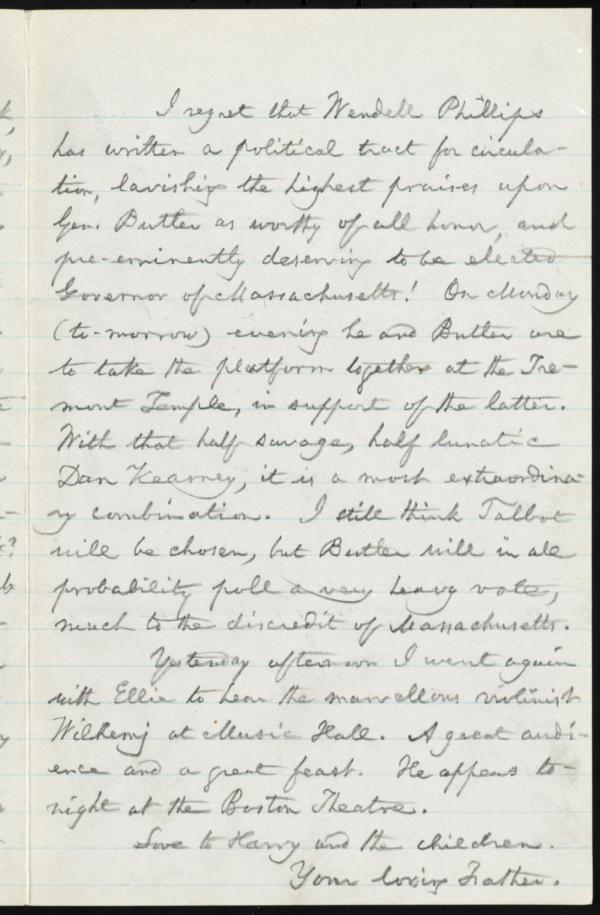 I regret that Wendell Phillips
has written a political tract for circula-
tion, lavishing the highest praises upon
Gen. Butler as worthy of all honor, and
pre-eminently deserving to be elected
Governor of Massachusetts! On Monday
(to-morrow) evening he and Butler are
to take the platform together at the Tre-
mont Temple, in support of the latter.
With that half savage, half lunatic
Dan Kearney, it is a most extraordina-
ry combination. I still think Talbot
will be chosen, but Butler will in all
probability poll a very heavy vote,
much to the discredit of Massachusetts.
Yesterday afternoon I went again
with Ellie to hear the marvellous violinist
Wilhemj at Music Hall. A great audi-
ence and a great feast. He appears to-
night at the Boston Theatre.
Love to Harry and the children.
Your loving Father.